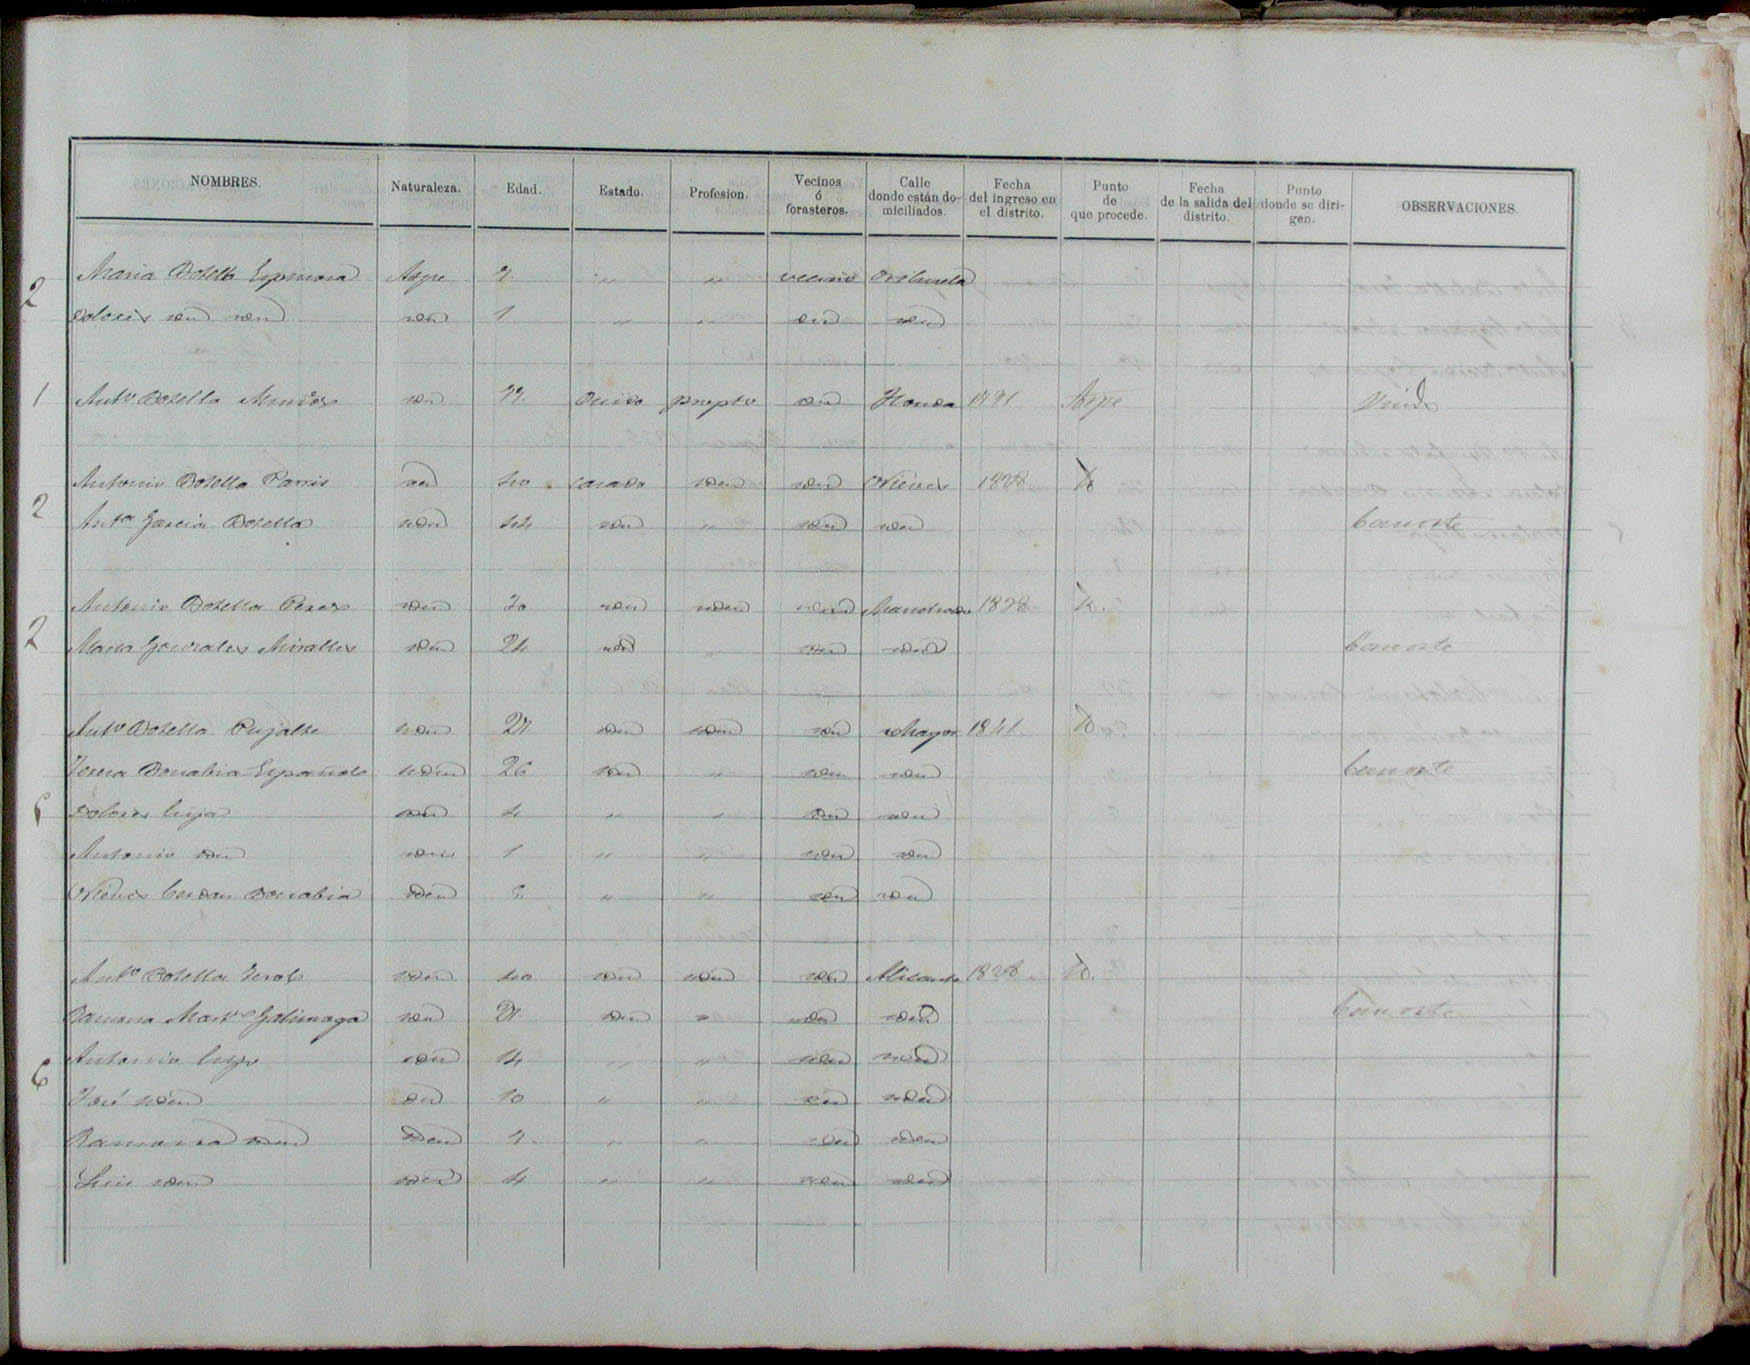 NOMBRES. Naturaleza. Edad. Estado. Profesion. Vecinos ó forasteros. Calle donde están domiciliados. Fecha del ingreso en el distrito. Punto de que procede. Fecha de la salida del distrito. Punto donde se dirigen. OBSERVACIONES.
2 Maria Botella Espinosa Aspe 7 " " vecino Orihuela
Dolores iden iden iden 1 " " iden iden
1 Antº Botella iden Viudo propto iden Honda Aspe Viudo
2 Antonio Botella iden 40 casado iden iden Nieves 1838 Yd
Antª Garcia Botella iden 44 iden " iden iden Consorte
Antonio Botella Perez iden 30 iden iden iden Id.
2 Maria Gonzalez Miralles iden 24 iden " iden iden Consorte
Antº Botella Pujalte iden iden iden iden Mayor 1841 Yd
Teresa Española iden 26 iden " iden iden Consorte
Dolores hija iden 4 " " iden iden
Antonio iden iden 1 " " iden iden
Nieves Cerdan iden " " iden iden
Antº Botella iden 40 iden iden iden Alicante 1838 Yd.
Ramona Galinaga iden iden " iden iden Consorte
Antonio hijo iden 14 " " iden iden
6 José iden iden 10 " " iden iden
Ramona iden iden 7 " " iden iden
Luis iden iden 4 " " iden iden